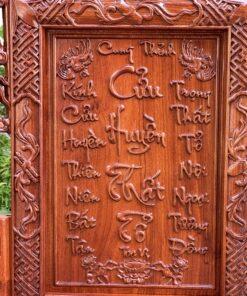 Cung Thỉnh
Cửu
Huyền
Thất
Tổ
Tại Vị
Kính
Cửu
Huyền
Thiên
Niên
Bất
Tán
Trọng
Thất
Tổ
Nội
Ngoại
Trường
Đồng